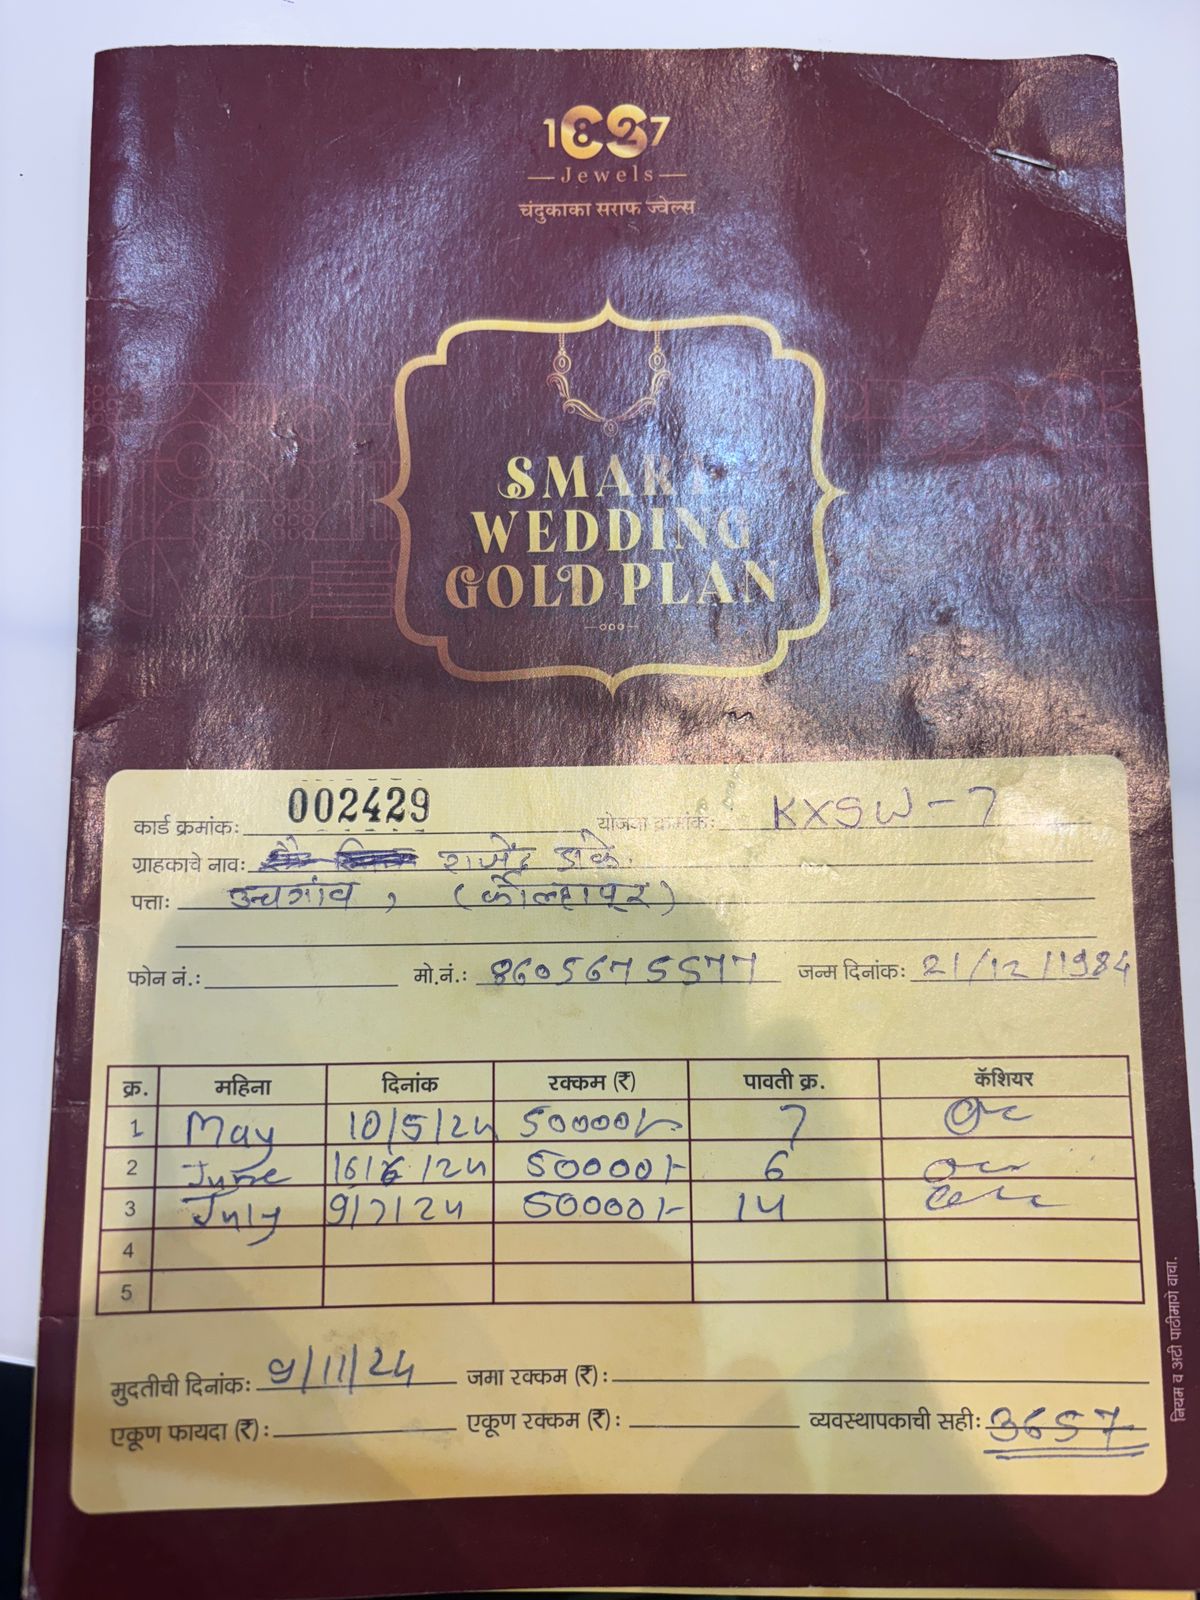 1827
CS
Jewels
चंदुकाका सराफ ज्वेल्स
SMART
WEDDING
GOLD PLAN
कार्ड क्रमांक: 002429 योजना क्रमांक: KXSW-7
ग्राहकाचे नाव: राजेंद्र डाके.
पत्ता: उचगांव, (कोल्हापूर)
फोन नं.: मो.नं.: 8605675577 जन्म दिनांक: 21/12/1984
क्र. महिना दिनांक रक्कम (₹) पावती क्र. कॅशियर
1 May 10/5/24 50000/- 7
2 June 16/6/24 50000/- 6
3 July 9/7/24 50000/- 14
4
5
मुदतीची दिनांक: 9/11/24 जमा रक्कम (₹):
एकूण फायदा (₹): एकूण रक्कम (₹): व्यवस्थापकाची सही: 3657
नियम व अटी पाठीमागे वाचा.